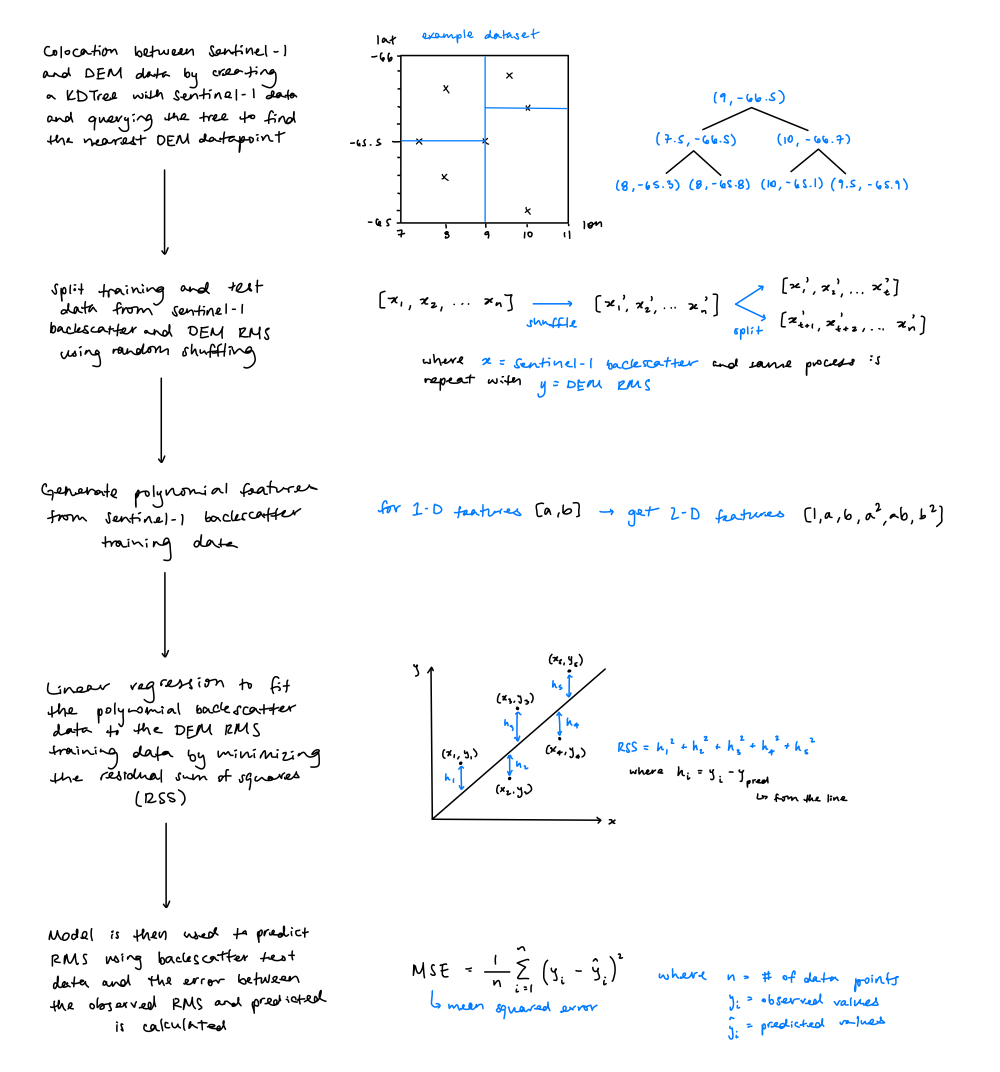 Colocation between sentinel-1
and DEM data by creating
a KDTree with sentinel-1 data
and querying the tree to find
the nearest DEM datapoint
lat
example dataset
-66
-65.5
-65
7 8 9 10 11
lon
(9, -66.5)
(7.5, -66.5) (10, -66.7)
(8, -65.3) (8, -65.8) (10, -65.1) (9.5, -65.9)
split training and test
data from sentinel-1
backscatter and DEM RMS
using random shuffling
[x₁, x₂, ... xₙ] → [x₁', x₂', ... xₙ']
shuffle
split
[x₁', x₂', ... xₜ']
[xₜ₊₁', xₜ₊₂', ... xₙ']
where x = sentinel-1 backscatter and same process is
repeat with y = DEM RMS
Generate polynomial features
from sentinel-1 backscatter
training data
for 1-D features [a,b] → get 2-D features [1,a,b,a²,ab,b²]
Linear regression to fit
the polynomial backscatter
data to the DEM RMS
training data by minimizing
the residual sum of squares
(RSS)
y
(x₅, y₅)
h₅
(x₃, y₃)
h₃
h₄
(x₄, y₄)
(x₁, y₁)
h₁
h₂
(x₂, y₂)
x
RSS = h₁² + h₂² + h₃² + h₄² + h₅²
where hᵢ = yᵢ - y pred
↳ from the line
Model is then used to predict
RMS using backscatter test
data and the error between
the observed RMS and predicted
is calculated
MSE = 1/n Σ i=1 n (yᵢ - ŷᵢ)²
↳ mean squared error
where n = # of data points
yᵢ = observed values
ŷᵢ = predicted values